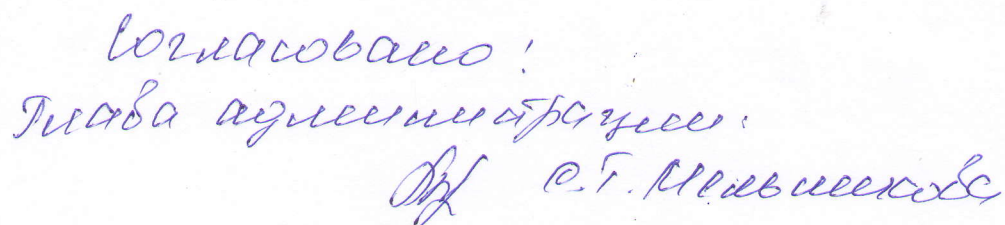 Согласовано!
Глава администрации.
С.Т. Мельникова